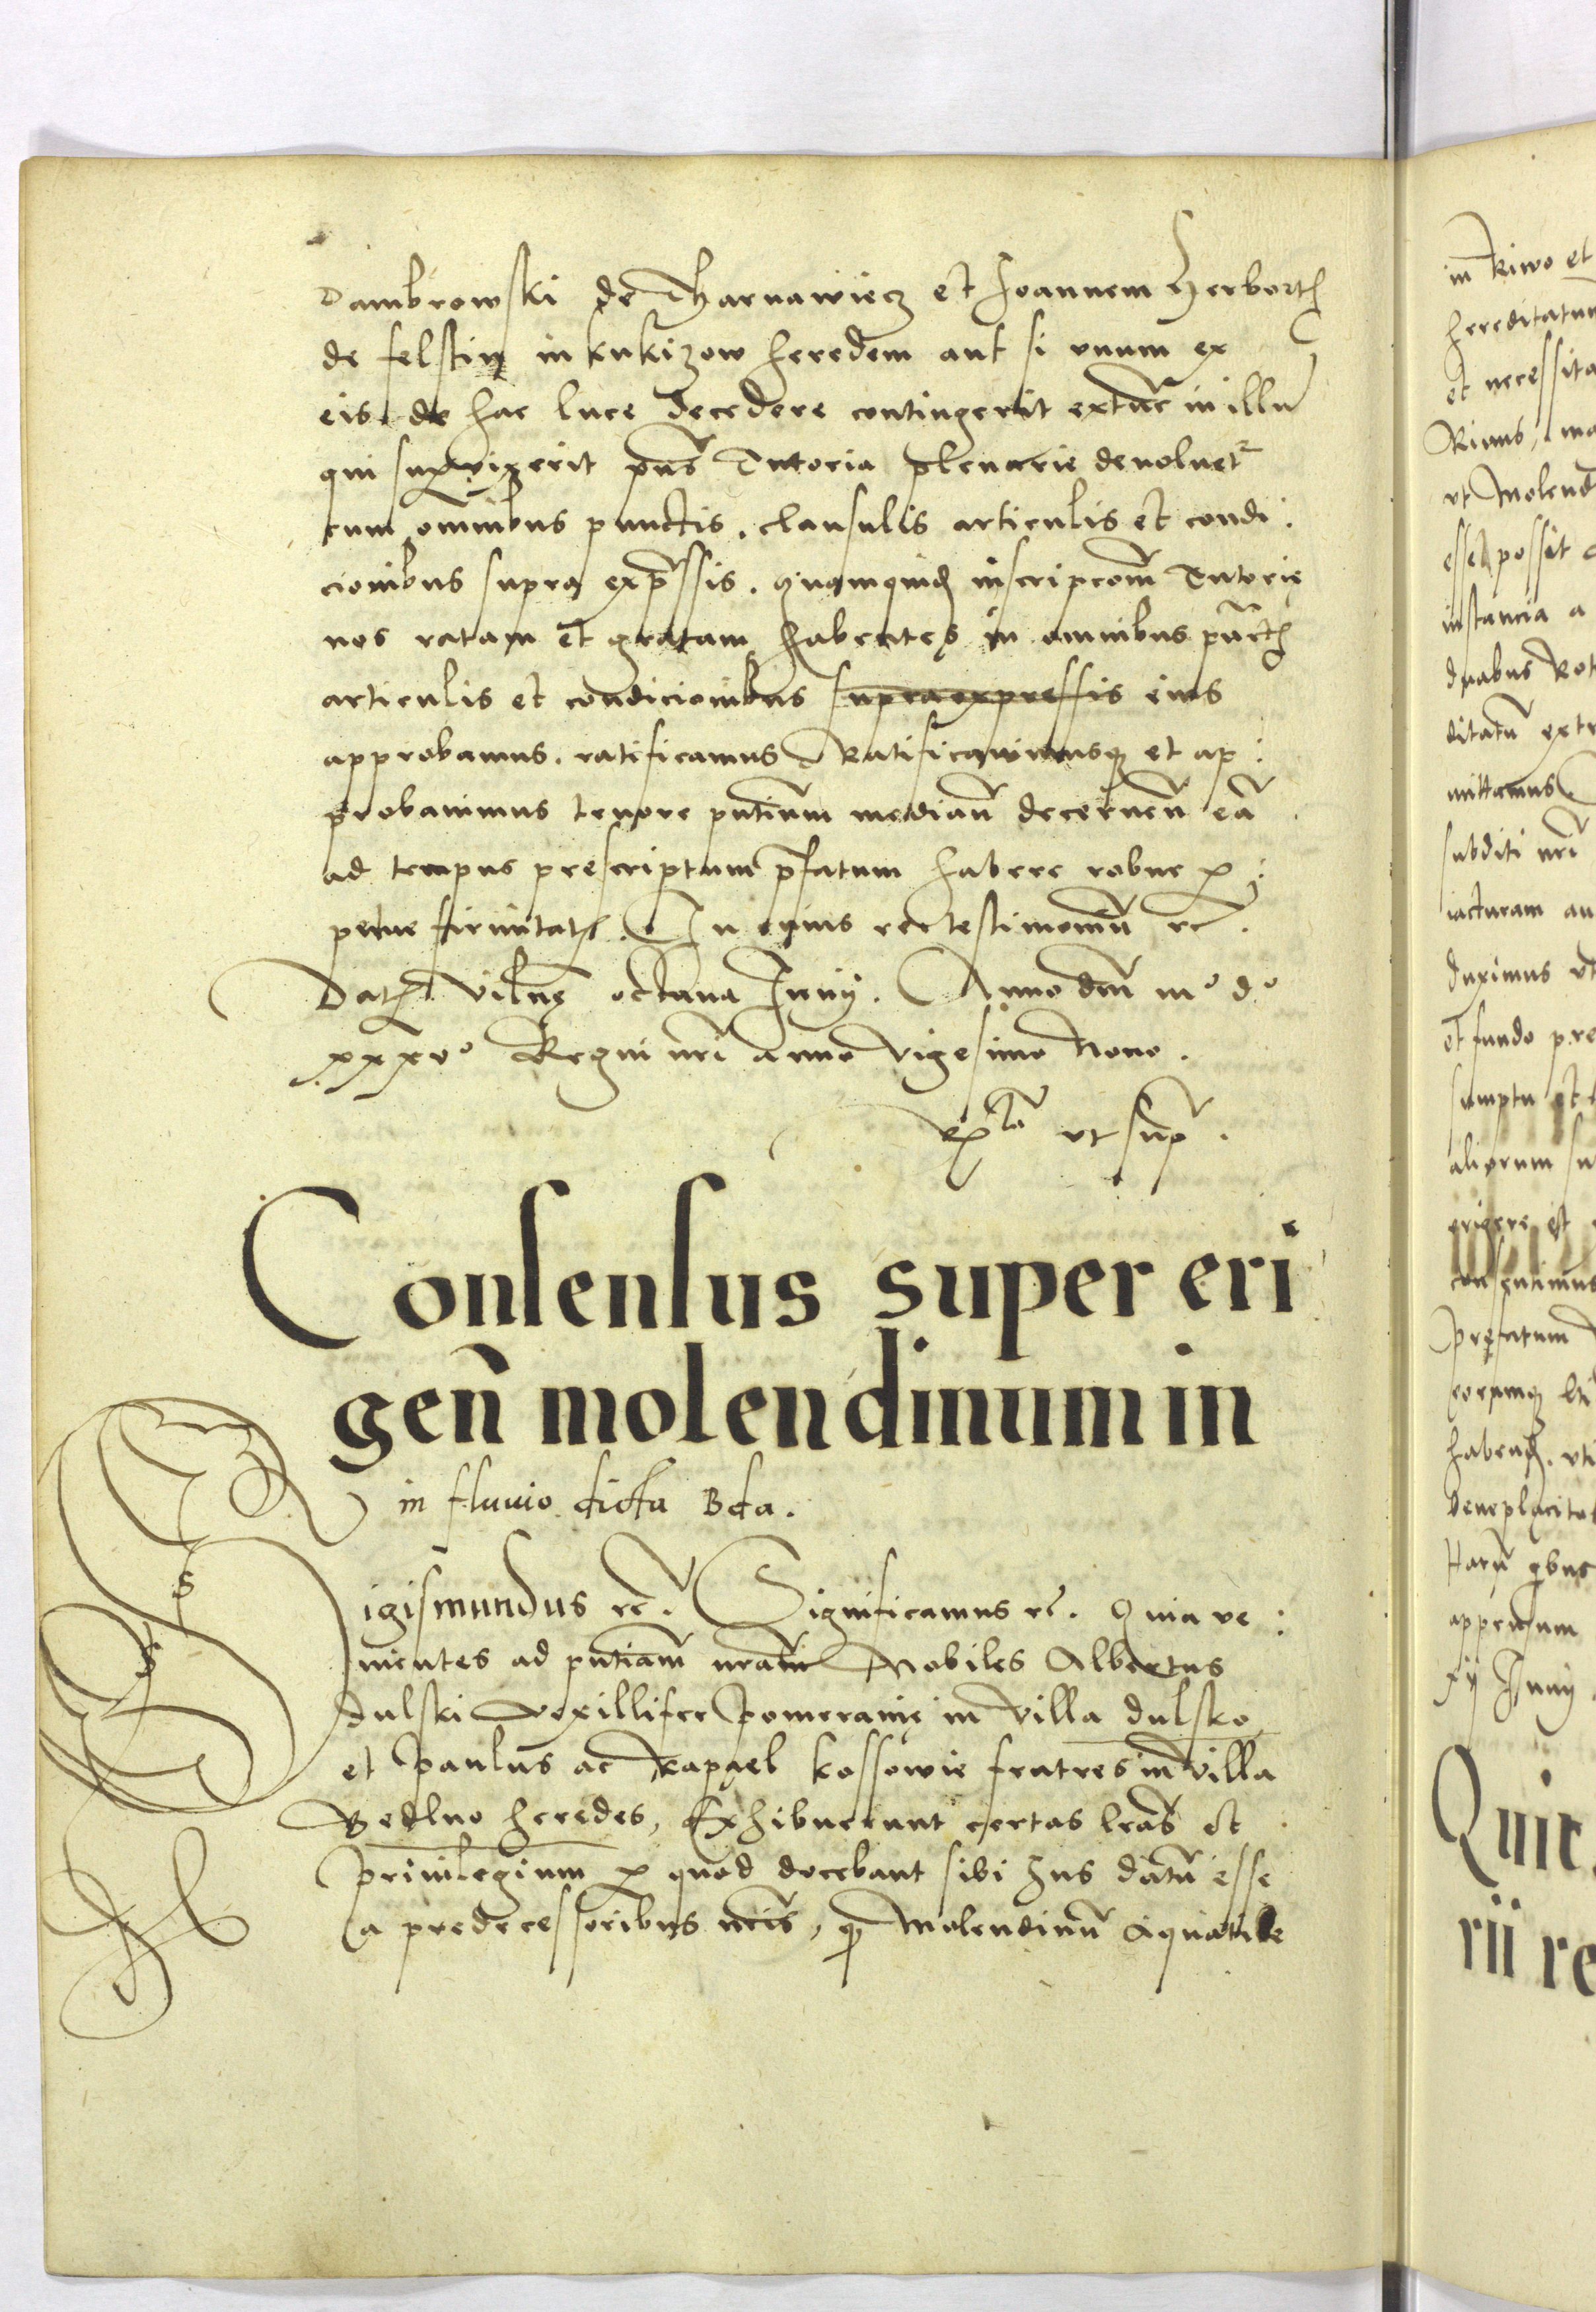 Dambrowski de Tharnawiecz et Joannem Herborth
de felstin in kukizow heredem aut si unum ex
eis de hac luce decedere contingerit extūc in illū
qui supvixerit pn̄s Tutoria plenarie devoluet᷑
cum om̄ibus punctis, clausulis articulis et condi:
cionibus supra exp̄ssis. quamquid inscripcom̄ Tutorie
nos ratam et gratam habentes in omnibus pūct
articulis et condicionibus supra expressis eius
approbamus. ratificamus Ratificavimusqȝ et ap:
probavimus tenore pn̄tium median̄ decernen̄ eā
ad tempus prescriptum p̄fatum habere robur p:
petue firmitat. In cuius rei testimoniū rc̄.
Dat Vilnę octava Junij. Anno dn̄i mº dº
xxxvº Regni nr̄i anno vigesimo Nono.
ut sup̄.
Consensus super eri
gen̄ molendinum in
in fluvio dicta Bda.
Sigismundus rc̄. Significamus rc̄. Quia ve:
nientes ad pn̄tiam nr̄am Nobiles Albertus
dulski Vexillifer Pomeranię in villa dulsko
et Paulus ac Raphael kossowie fratres in villa
Bedlno heredes, Exhibuerunt certas lr̄as et
privilegium p quod docebant sibi Jus datū esse
a predecessoribus nr̄is, qȝ Molendinū aquatile
in Rivo et
hereditatum
et necessita
Rivus,
ut Molend
esse possit
instancia a
duabus Rot
ditatū extr
mittamus
subditi nr̄i
iacturam au
duximus ut
et fundo pre
sumptu et
aliorum su
erigere et
consentimus
prefatum
eorumqȝ
habend. uti
beneplacito
Harū qbus
appensum
Junij
Quit
rii re